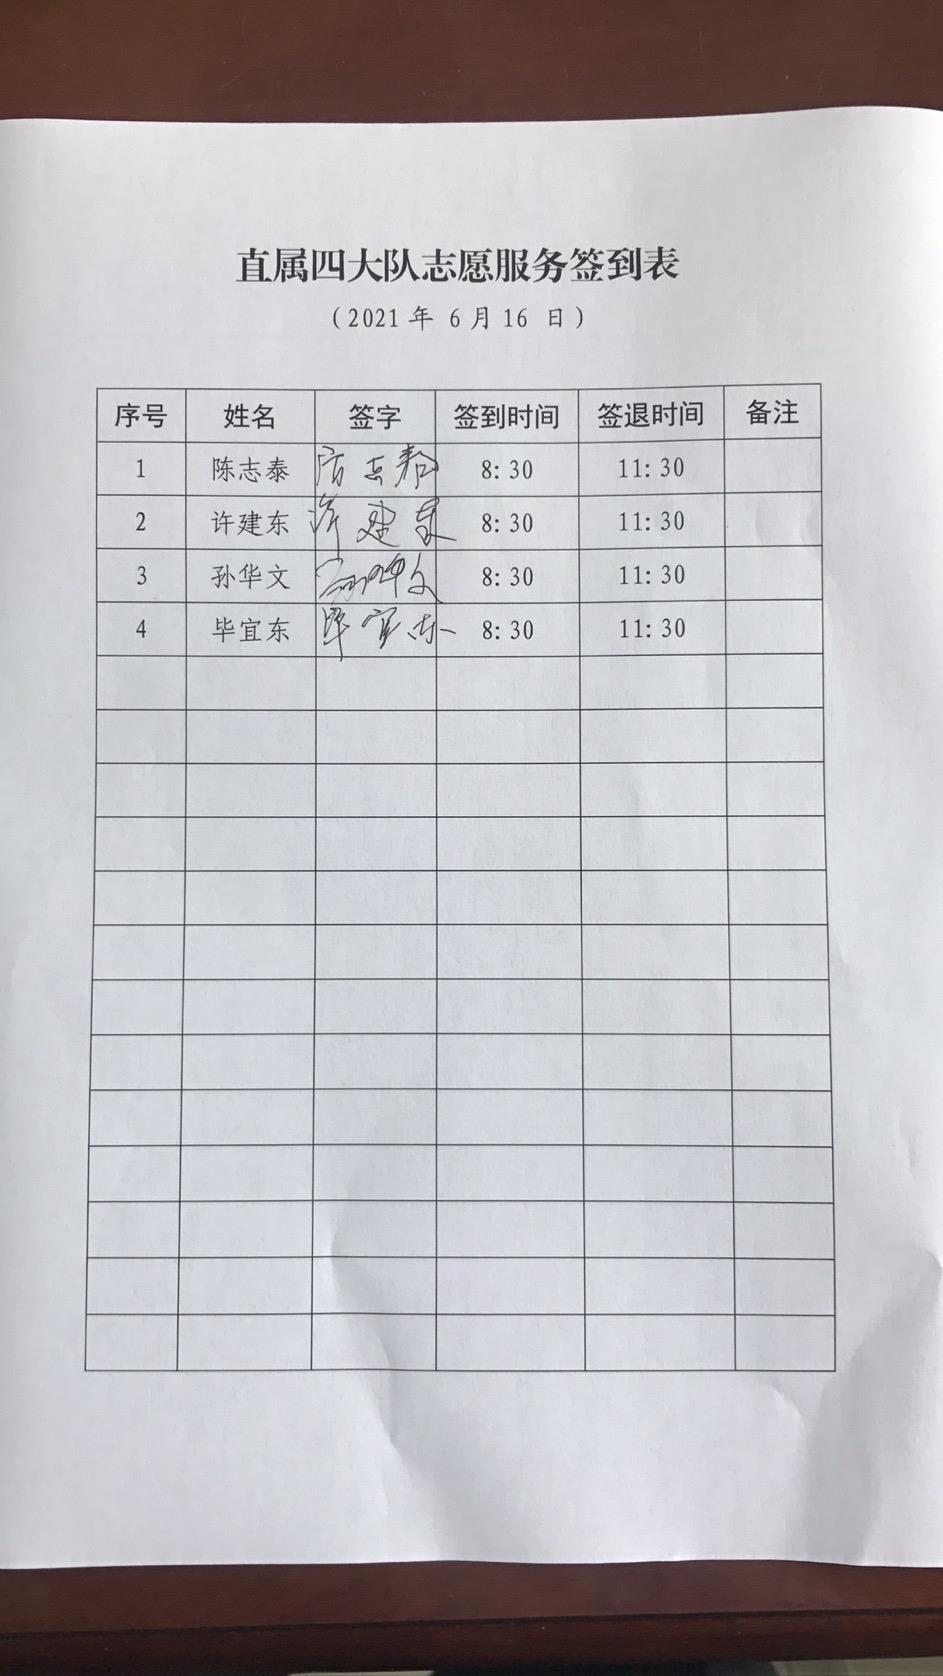 直属四大队志愿服务签到表
（2021 年 6 月 16 日）
序号 姓名 签字 签到时间 签退时间 备注
1 陈志泰 8:30 11:30
2 许建东 许建东 8:30 11:30
3 孙华文 8:30 11:30
4 毕宜东 毕宜东 8:30 11:30